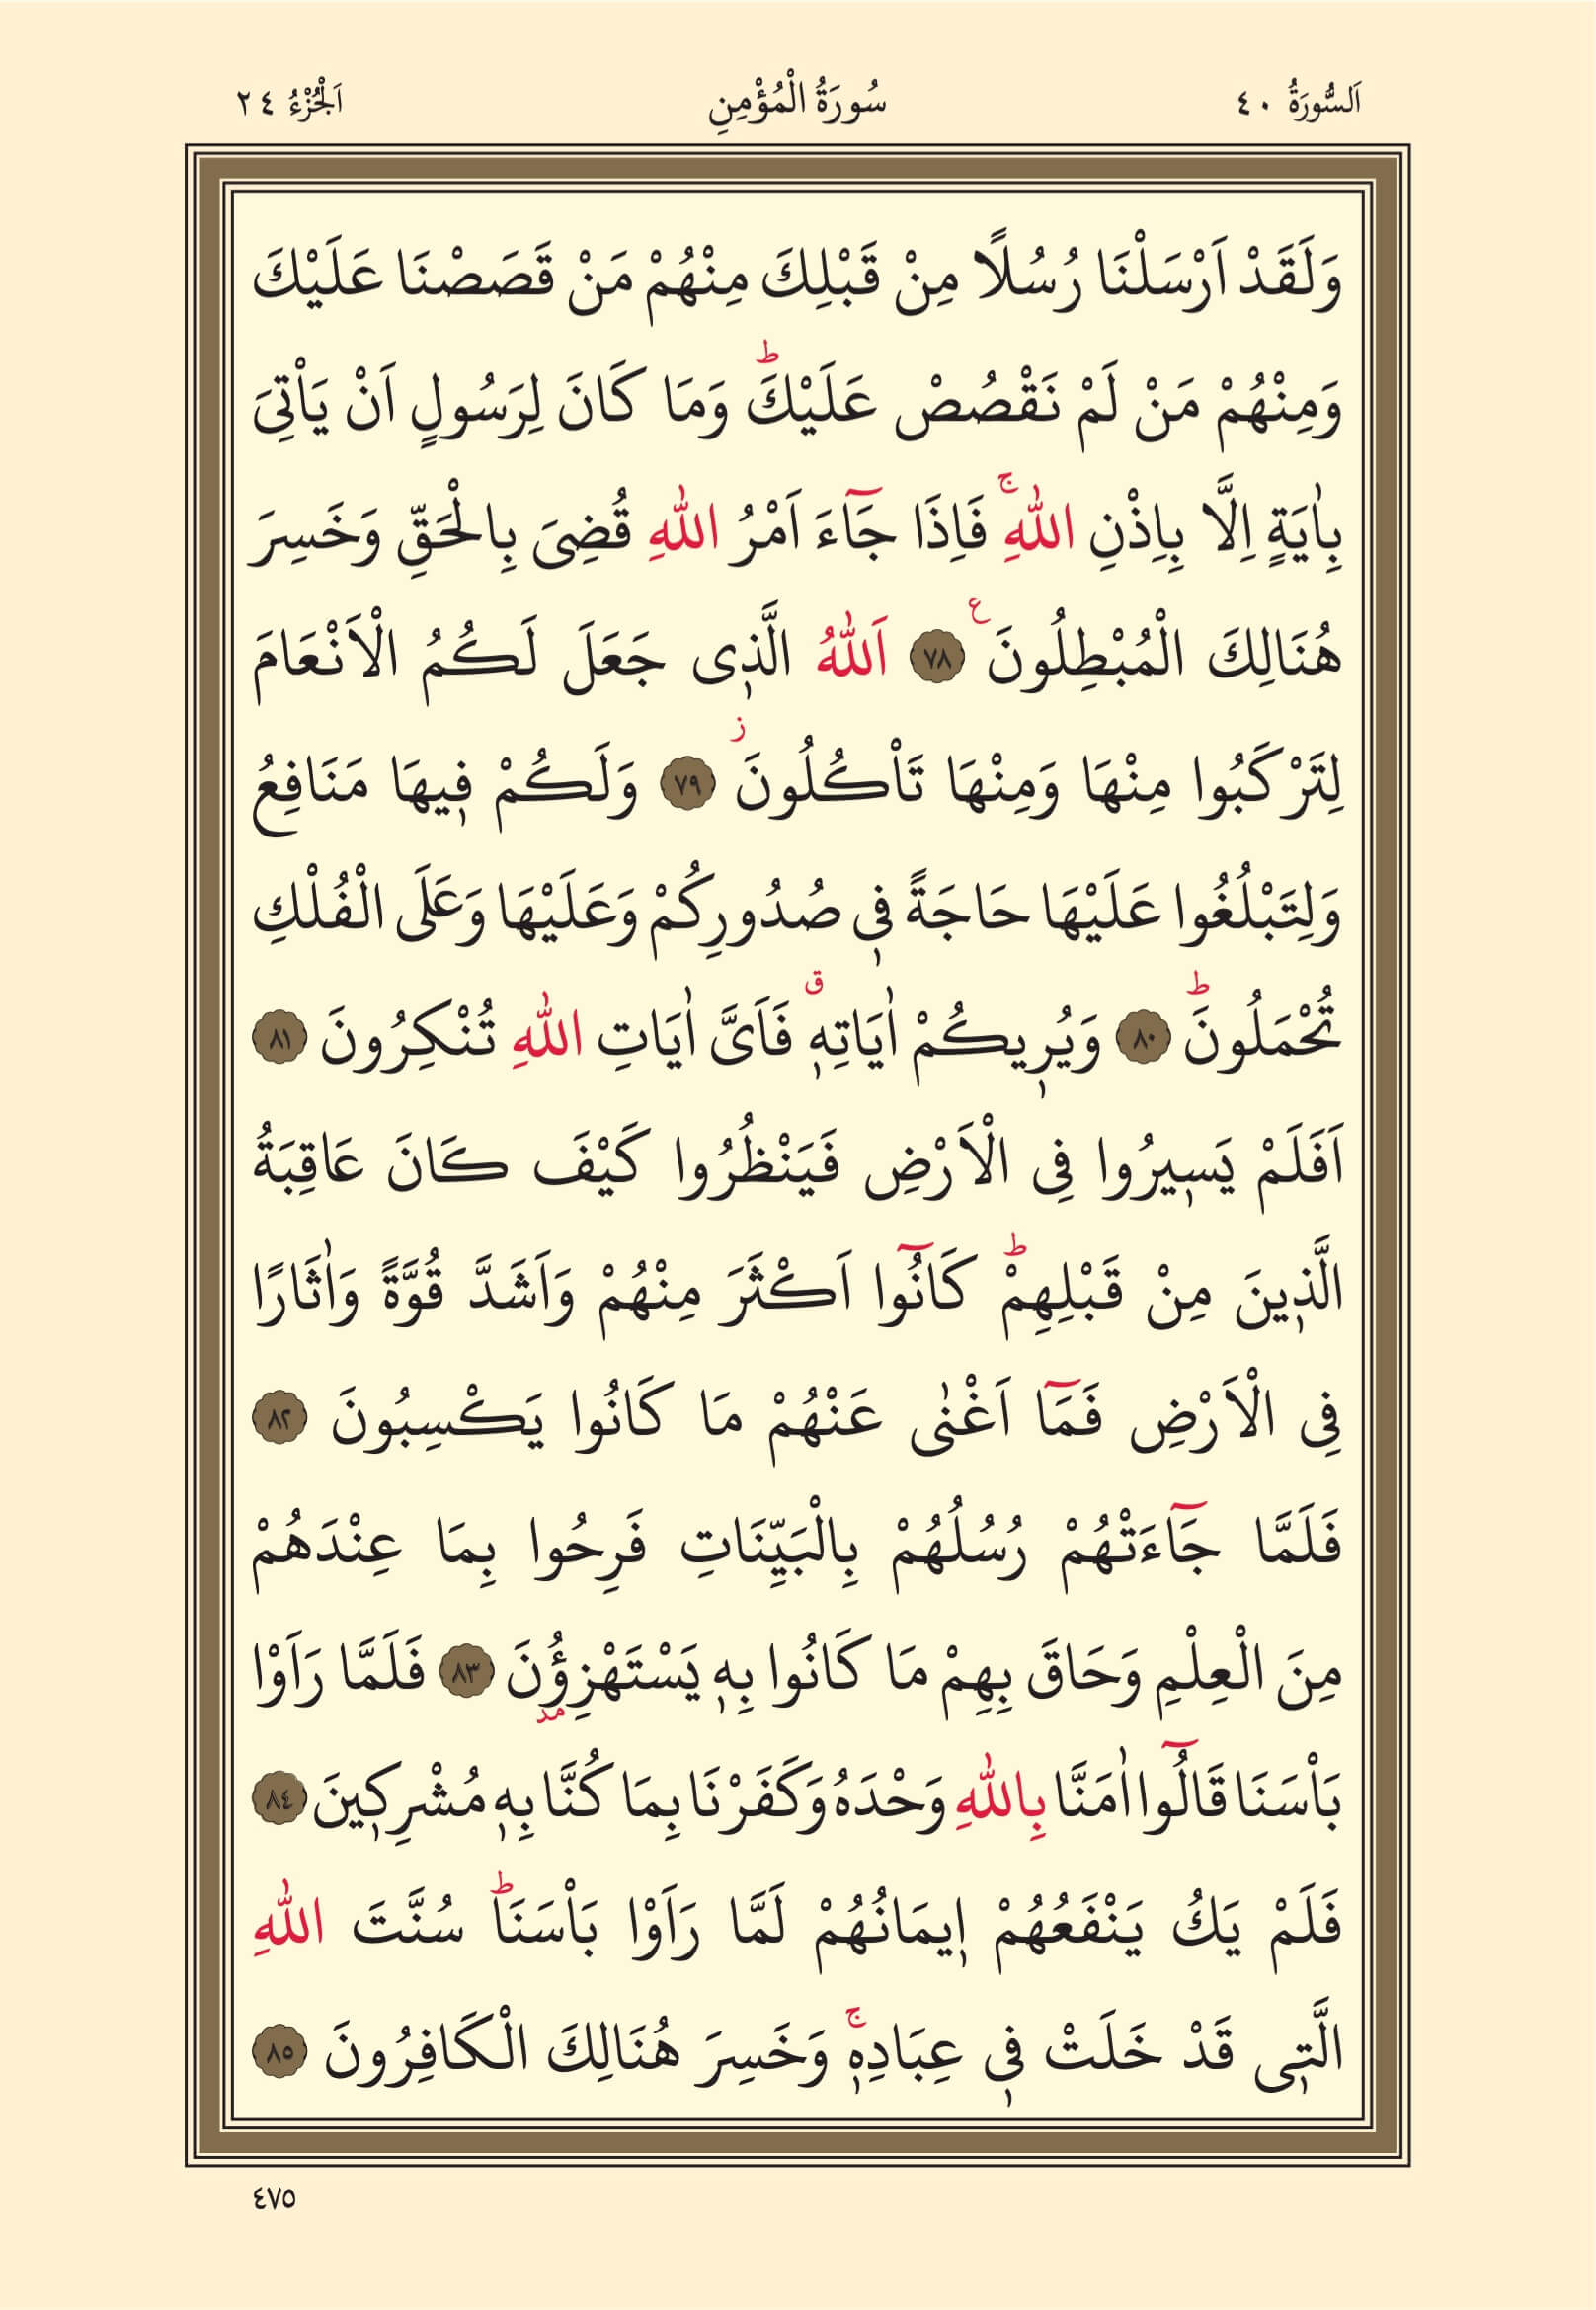 اَلسُّورَةُ ٤٠ سُورَةُ الْمُؤْمِنِ اَلْجُزْءُ ٢٤
وَلَقَدْ اَرْسَلْنَا رُسُلًا مِنْ قَبْلِكَ مِنْهُمْ مَنْ قَصَصْنَا عَلَيْكَ
وَمِنْهُمْ مَنْ لَمْ نَقْصُصْ عَلَيْكَؕ وَمَا كَانَ لِرَسُولٍ اَنْ يَاْتِىَ
بِاٰيَةٍ اِلَّا بِاِذْنِ اللّٰهِۚ فَاِذَا جَٓاءَ اَمْرُ اللّٰهِ قُضِىَ بِالْحَقِّ وَخَسِرَ
هُنَالِكَ الْمُبْطِلُونَ ع ٧٨ اَللّٰهُ الَّذ۪ى جَعَلَ لَكُمُ الْاَنْعَامَ
لِتَرْكَبُوا مِنْهَا وَمِنْهَا تَاْكُلُونَ ز ٧٩ وَلَكُمْ ف۪يهَا مَنَافِعُ
وَلِتَبْلُغُوا عَلَيْهَا حَاجَةً ف۪ى صُدُورِكُمْ وَعَلَيْهَا وَعَلَى الْفُلْكِ
تُحْمَلُونَؕ ٨٠ وَيُر۪يكُمْ اٰيَاتِه۪ۗ فَاَىَّ اٰيَاتِ اللّٰهِ تُنْكِرُونَ ٨١
اَفَلَمْ يَس۪يرُوا فِى الْاَرْضِ فَيَنْظُرُوا كَيْفَ كَانَ عَاقِبَةُ
الَّذ۪ينَ مِنْ قَبْلِهِمْؕ كَانُٓوا اَكْثَرَ مِنْهُمْ وَاَشَدَّ قُوَّةً وَاٰثَارًا
فِى الْاَرْضِ فَمَٓا اَغْنٰى عَنْهُمْ مَا كَانُوا يَكْسِبُونَ ٨٢
فَلَمَّا جَٓاءَتْهُمْ رُسُلُهُمْ بِالْبَيِّنَاتِ فَرِحُوا بِمَا عِنْدَهُمْ
مِنَ الْعِلْمِ وَحَاقَ بِهِمْ مَا كَانُوا بِه۪ يَسْتَهْزِؤُنَ مد ٨٣ فَلَمَّا رَاَوْا
بَاْسَنَا قَالُٓوا اٰمَنَّا بِاللّٰهِ وَحْدَهُ وَكَفَرْنَا بِمَا كُنَّا بِه۪ مُشْرِك۪ينَ ٨٤
فَلَمْ يَكُ يَنْفَعُهُمْ ا۪يمَانُهُمْ لَمَّا رَاَوْا بَاْسَنَاؕ سُنَّتَ اللّٰهِ
الَّت۪ى قَدْ خَلَتْ ف۪ى عِبَادِه۪ۚ وَخَسِرَ هُنَالِكَ الْكَافِرُونَ ٨٥
٤٧٥